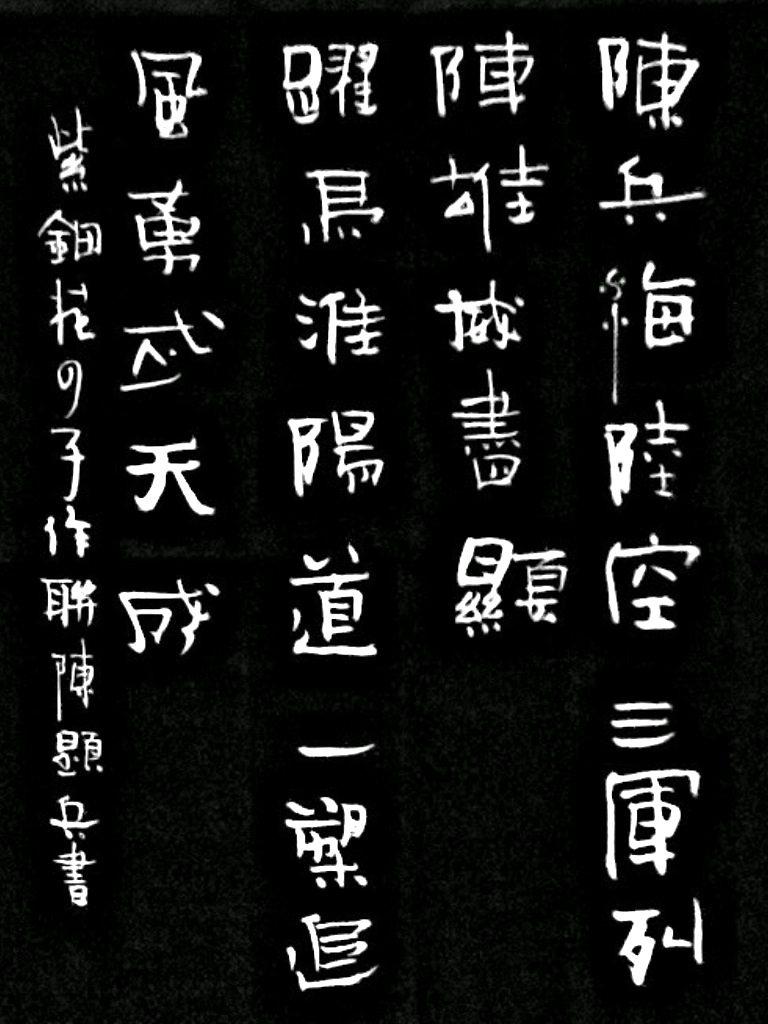 陳兵海陸空三軍列
陣雄威盡顯
躍馬淮陽道一槊追
風勇武天成
紫鈿花の子作聯陳顯兵書